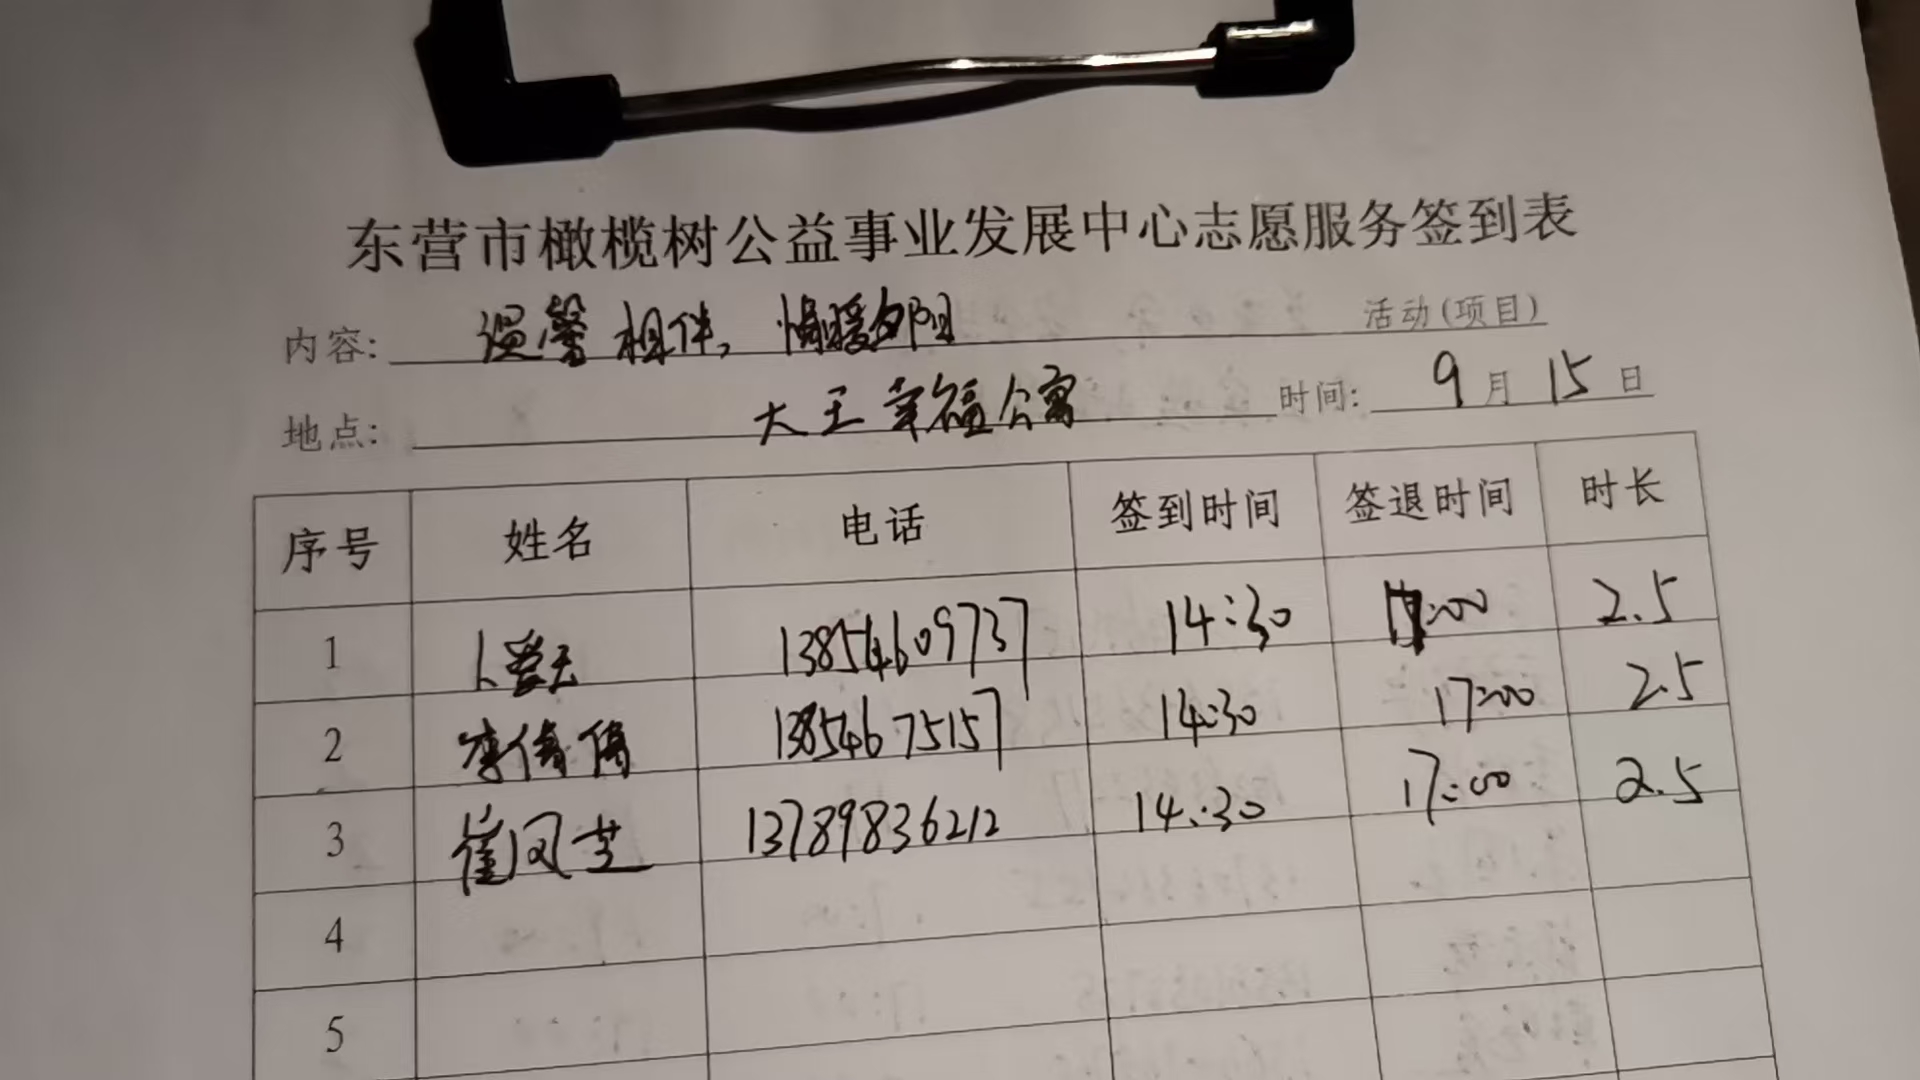 东营市橄榄树公益事业发展中心志愿服务签到表
内容: 温馨相伴,情暖夕阳 活动(项目)
地点: 大王幸福公寓 时间: 9月15日
序号 姓名 电话 签到时间 签退时间 时长
1 13854609737 14:30 17:00 2.5
2 李倩倩 13854675157 14:30 17:00 2.5
3 崔风芝 13789836212 14:30 17:00 2.5
4
5